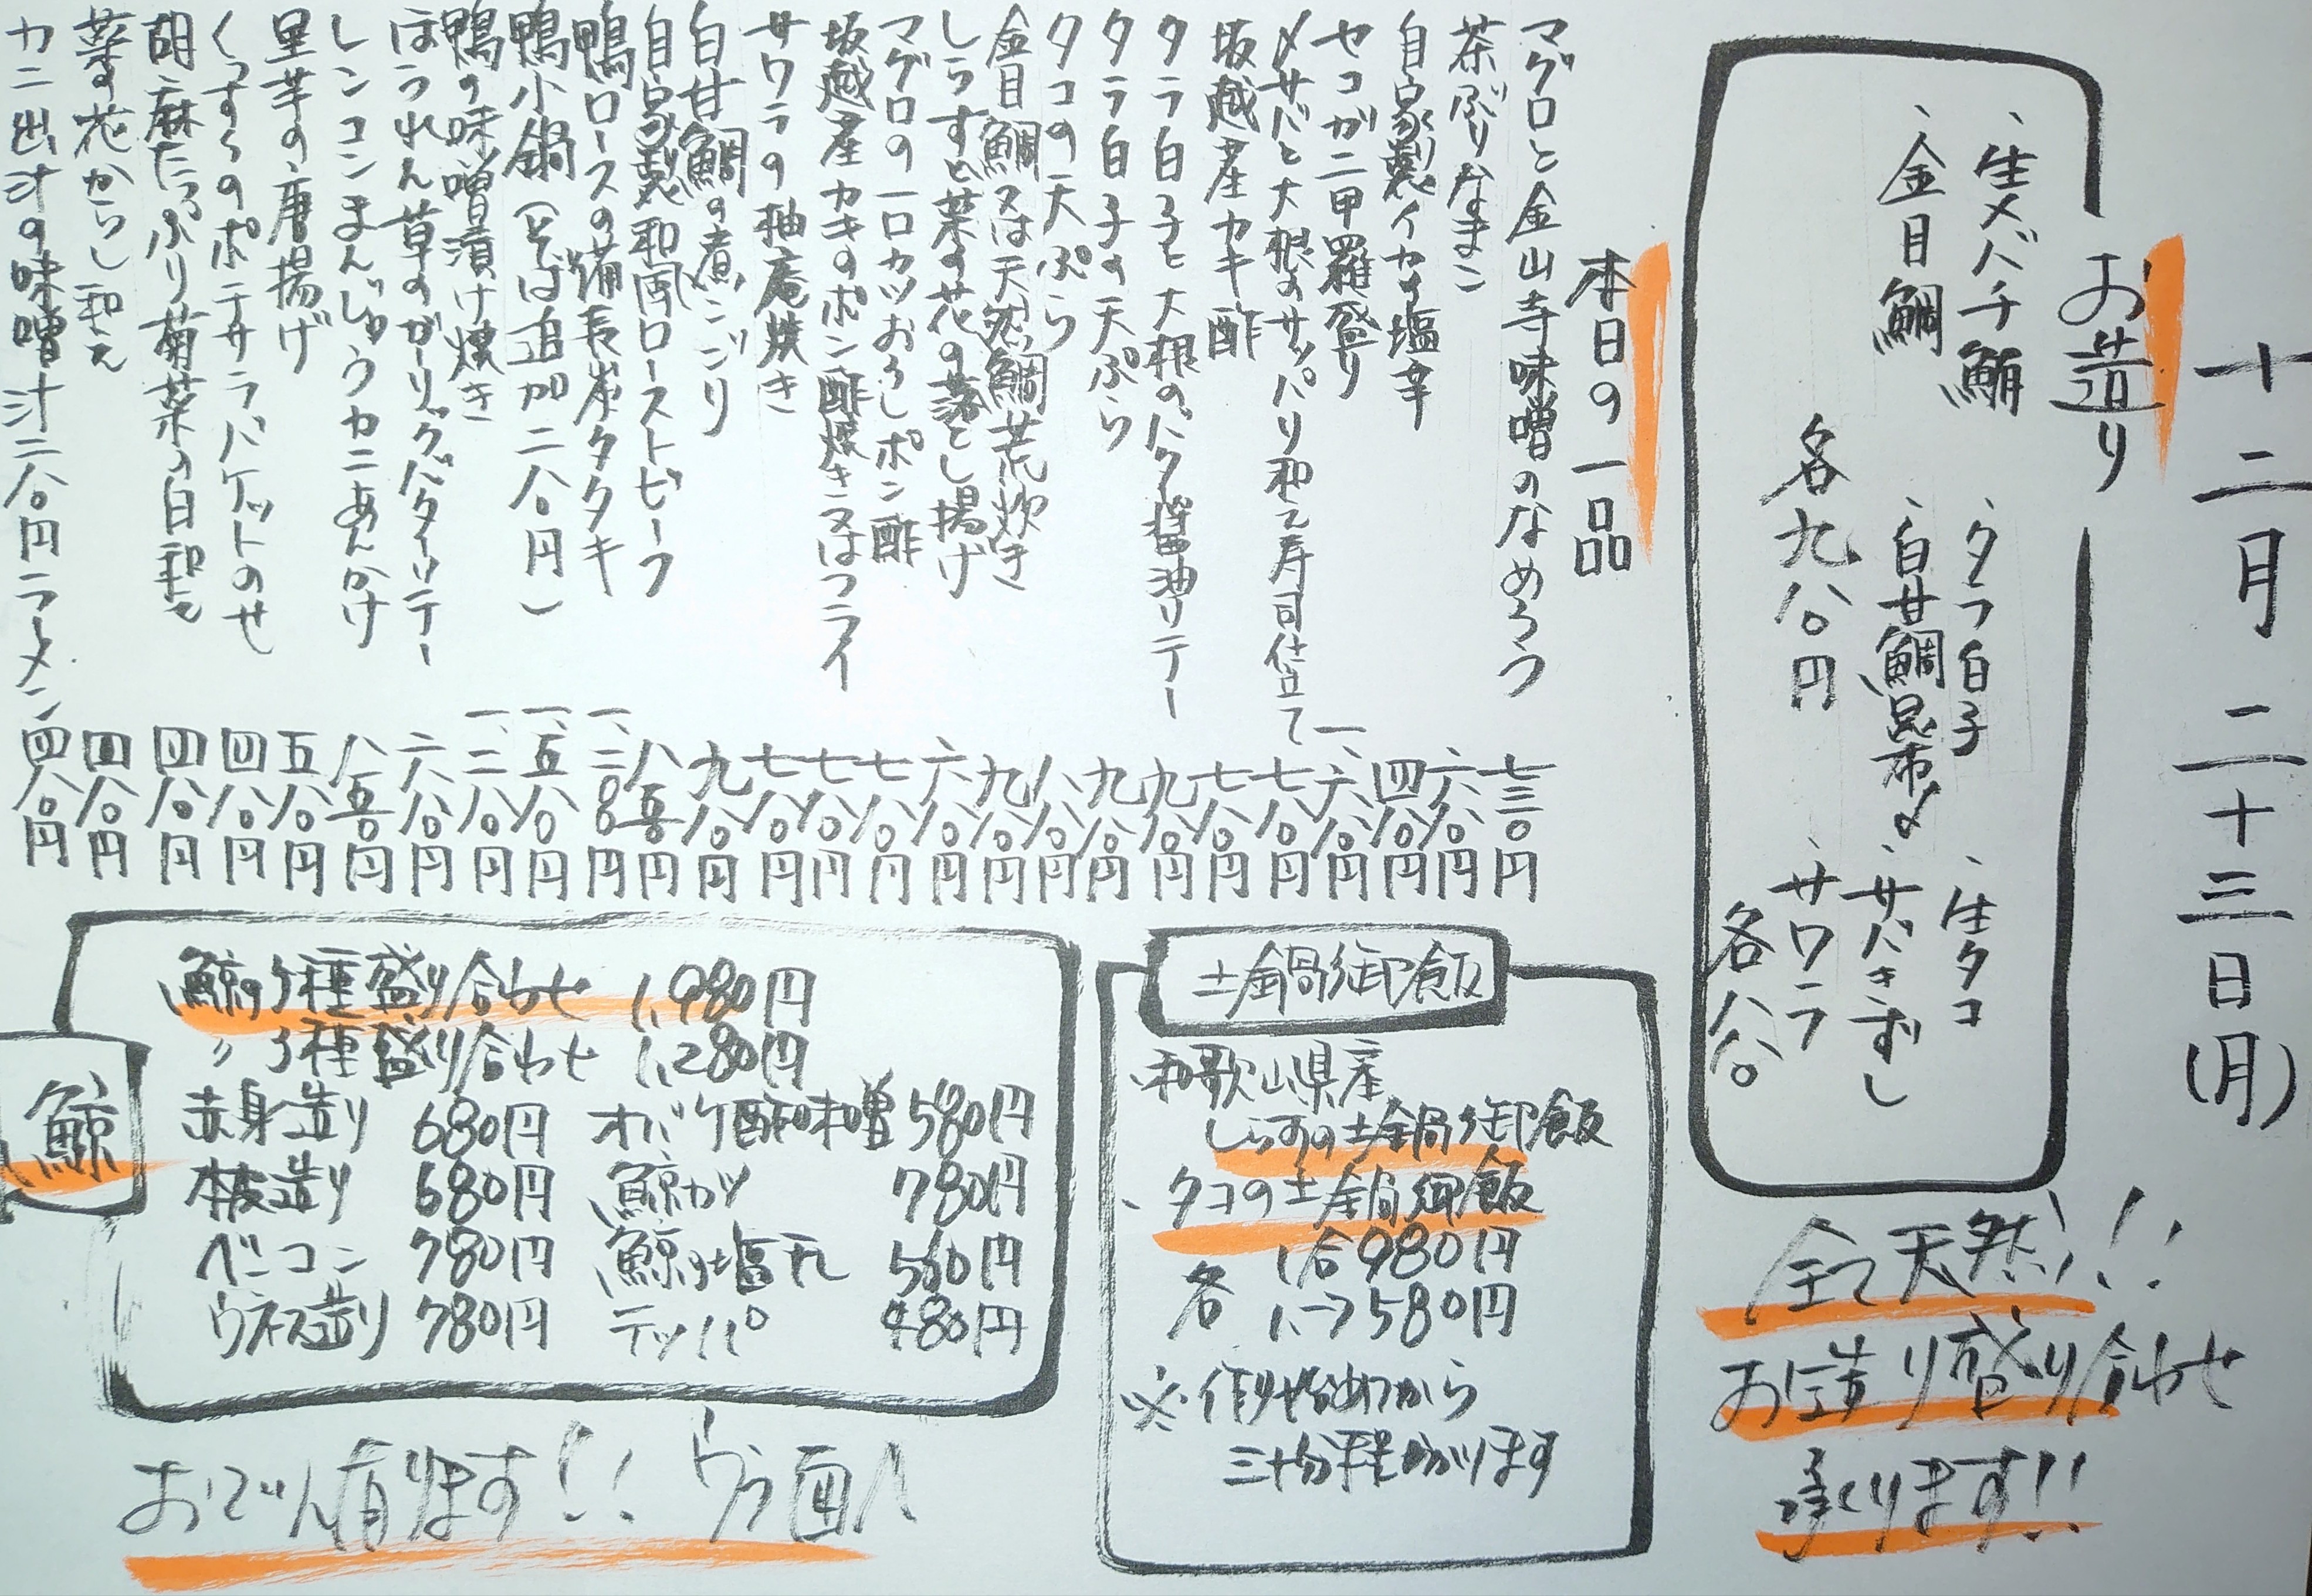 十二月二十三日(月)
お造り
、生メバチ鮪
、金目鯛
各九八〇円
、タラ白子
、白甘鯛昆布〆
、生タコ
、サバきずし
、サワラ
各八八〇
全て天然!!
お造り盛り合わせ
承ります!!
本日の一品
マグロと金山寺味噌のなめろう 七三〇円
茶ぶりなまこ 六八〇円
自家製イカの塩辛 四八〇円
セコガニ甲羅盛り 一、六八〇円
〆サバと大根のサッパリ和え寿司仕立て 七八〇円
坂越産カキ酢 七八〇円
タラ白子と大根のバタ醤油ソテー 九八〇円
タラ白子の天ぷら 九八〇円
タコの天ぷら 八八〇円
金目鯛又は天然鯛荒炊き 九八〇円
しらすと菜の花の落とし揚げ 六八〇円
マグロの一口カツおろしポン酢 七八〇円
坂越産カキのポン酢焼き又はフライ 七八〇円
サワラの柚庵焼き 七八〇円
白甘鯛の煮こごり 九八〇円
自家製和風ローストビーフ 八五〇円
鴨ロースの備長炭タタキ 一、二〇〇円
鴨小鍋(そば追加二八〇円) 一、五八〇円
鴨の味噌漬け焼き 一、二八〇円
ほうれん草のガーリックバターソテー 六八〇円
レンコンまんじゅうカニあんかけ 八五〇円
里芋の唐揚げ 五八〇円
くつすくのポテサラバケットのせ 四八〇円
胡麻たっぷり菊菜の白和え 四八〇円
菜の花からし和え 四八〇円
カニ出汁の味噌汁二八〇円ラーメン 四八〇円
土鍋御飯
、和歌山県産
しらすの土鍋御飯
、タコの土鍋御飯
各 1合980円
1.5〃1,580円
※作り始めから
三十分程掛ります
鯨
鯨の5種盛り合わせ 1,980円
〃 3種盛り合わせ 1,280円
赤身造り 680円 オバケ酢味噌 580円
本皮造り 680円 鯨カツ 780円
ベーコン 780円 鯨の塩干 580円
ウネス造り 780円 テッパ 480円
おでん有ります!! ウラ面へ